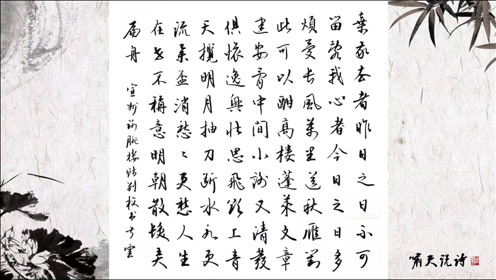 棄我去者昨日之日不可
留亂我心者今日之日多
煩憂長風萬里送秋雁對
此可以酣高樓蓬萊文章
建安骨中間小謝又清發
俱懷逸興壯思飛欲上青
天攬明月抽刀斷水水更
流舉盃消愁々更愁人生
在世不稱意明朝散髮弄
扁舟 宣州謝朓樓餞別校書叔雲
啸天说诗